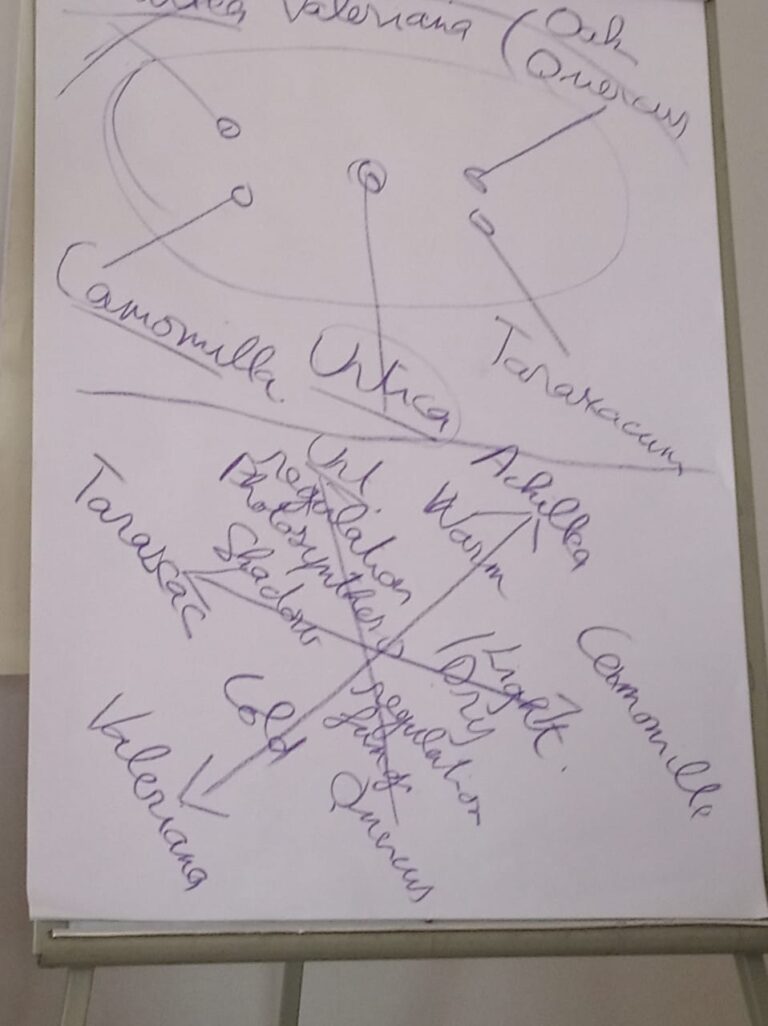 Valeriana (Oak
Quercus
Camomilla
Urtica
Taraxacum
Urt.
Achillea
regulation
Photosynthesis
Warm
Taraxac
Shadow
Light
Dry
Camomille
Cold
regulation
Valeriana
Quercus